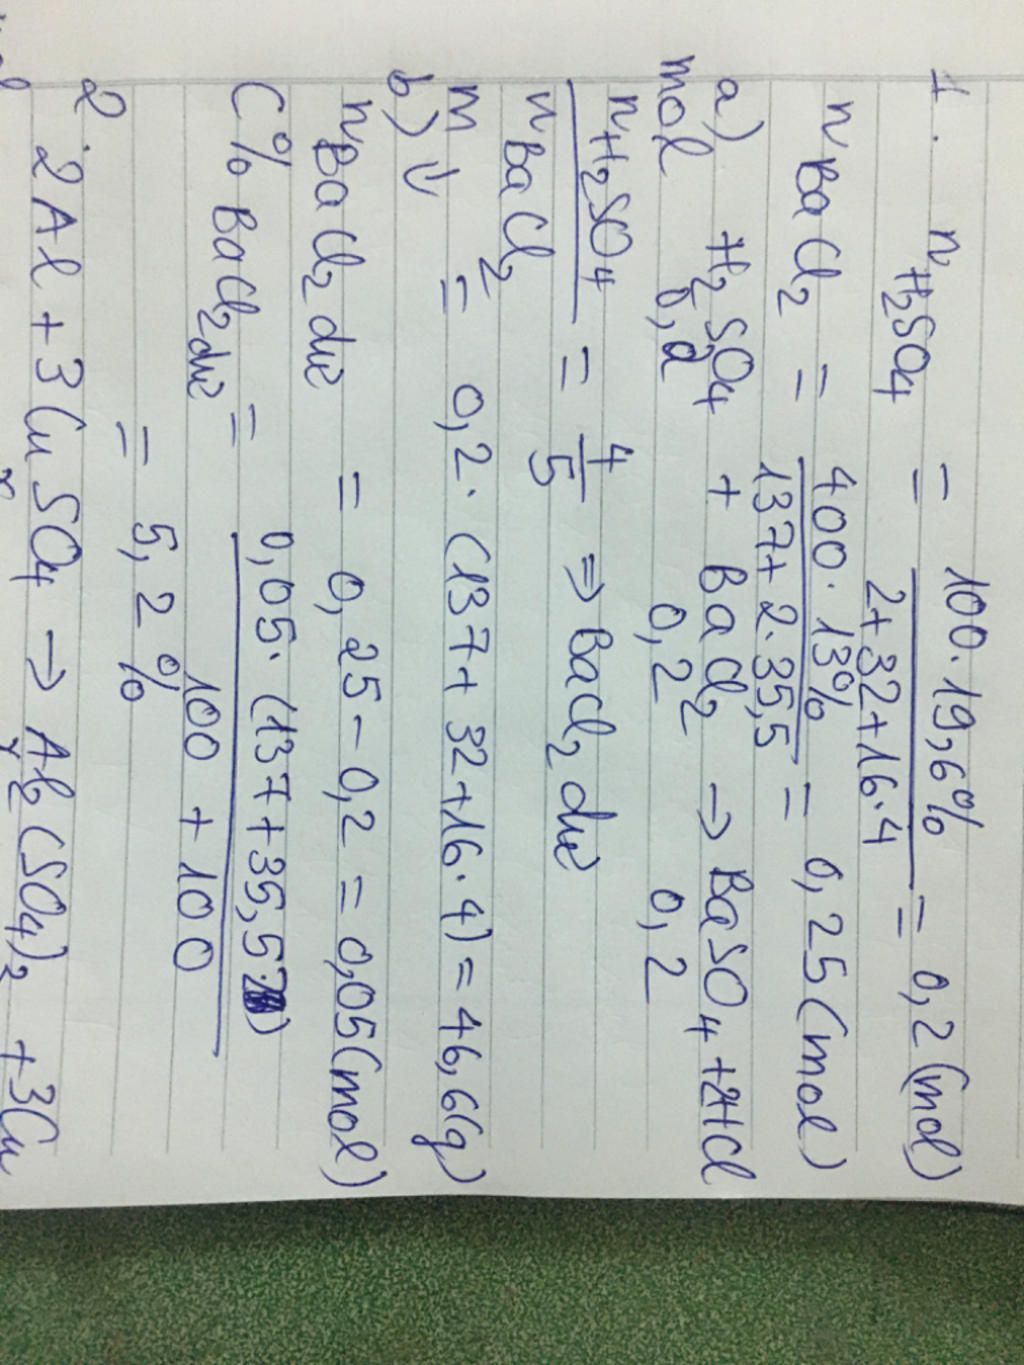 1. nH2SO4 = 100.19,6% / 2+32+16.4 = 0,2 (mol)
nBaCl2 = 400.13% / 137+2.35,5 = 0,25 (mol)
a) H2SO4 + BaCl2 → BaSO4 + 2HCl
mol 0,2 0,2 0,2
nH2SO4 / nBaCl2 = 4/5 ⇒ BaCl2 dư
m↓ = 0,2.(137+32+16.4) = 46,6(g)
b) nBaCl2 dư = 0,25-0,2 = 0,05 (mol)
C% BaCl2 dư = 0,05.(137+35,5.2) / 100+100
= 5,2%
2. 2Al + 3CuSO4 → Al2(SO4)2 + 3Cu